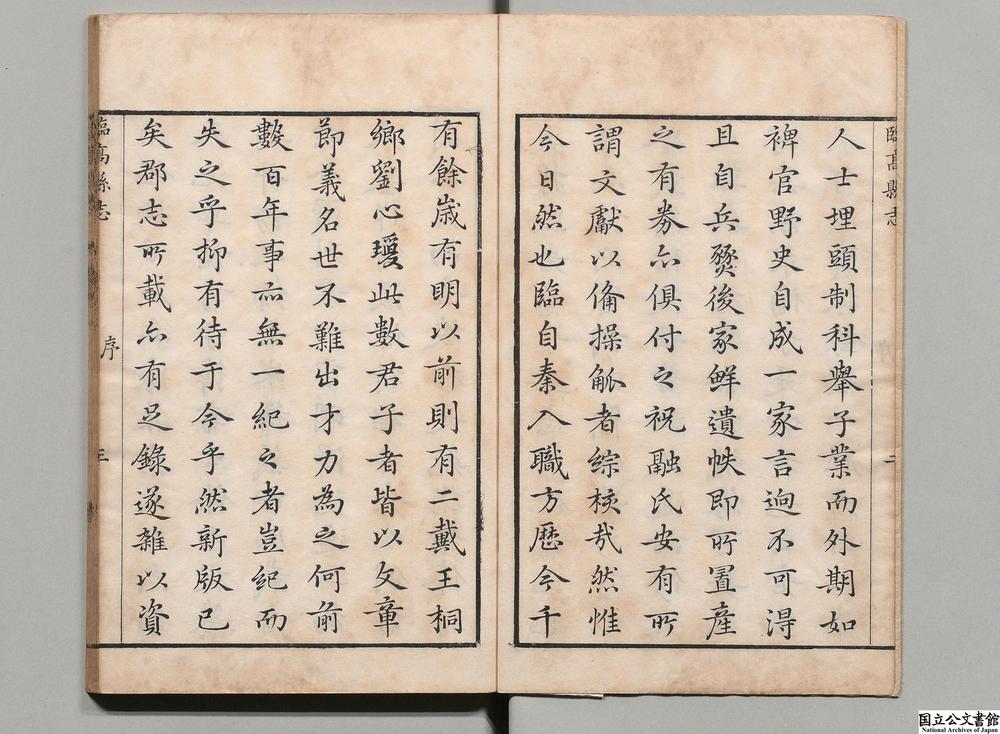 臨高縣志
二
人士埋頭制科舉子業而外期如
裨官野史自成一家言逈不可淂
且自兵燹後家鮮遺帙即所置産
之有券亦俱付之祝融氏安有所
謂文獻以俻操觚者綜核哉然惟
今日然也臨自秦入職方歷今千
有餘歲有明以前則有二戴王桐
鄉劉心瓊此數君子者皆以文章
節義名世不難出才力為之何前
數百年事亦無一紀之者豈紀而
失之乎抑有待于今乎然新版已
矣郡志所載亦有足錄遂雜以資
臨高縣志
序
三
国立公文書館
National Archives of Japan